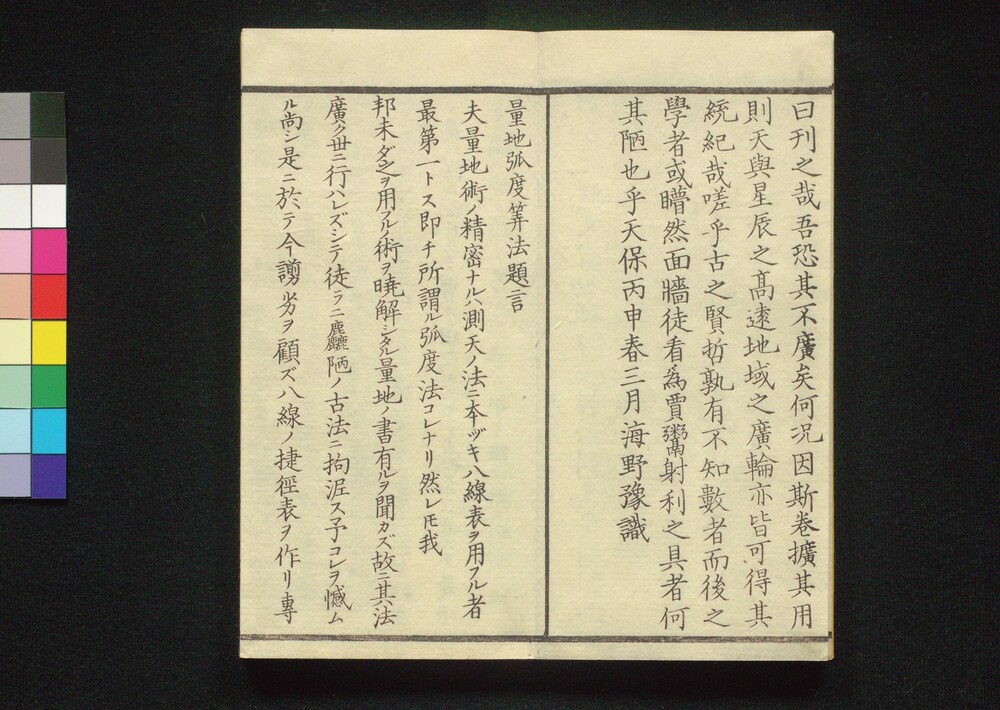 曰刊之哉吾恐其不廣矣何况因斯卷擴其用
則天與星辰之髙遠地域之廣輪亦皆可得其
統紀哉嗟乎古之賢哲孰有不知數者而後之
學者或矒然面牆徒看為賈鬻射利之具者何
其陋也乎天保丙申春三月海野豫識
量地弧度筭法題言
夫量地術ノ精密ナルハ測天ノ法ニ本ヅキ八線表ヲ用フル者
最第一トス即チ所謂ル弧度法コレナリ然レ𪜈我
邦未ダ之ヲ用フルノ術ヲ曉解シタル量地ノ書有ルヲ聞カズ故ニ其法
廣ク丗ニ行ハレズシテ徒ラニ麤陋ノ古法ニ拘泥ス予コレヲ憾ム
ル尚シ是ニ於テ今謭劣ヲ顧ズ八線ノ捷徑表ヲ作リ專